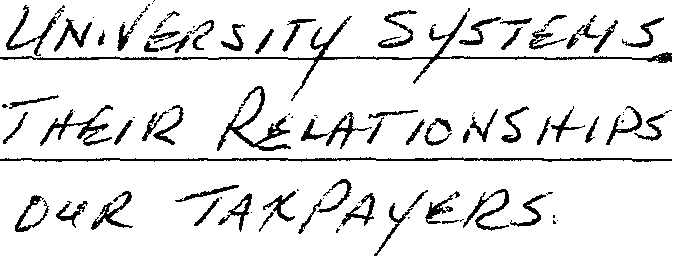 UNIVERSITY SYSTEMS
THEIR RELATIONSHIPS
OUR TAXPAYERS.